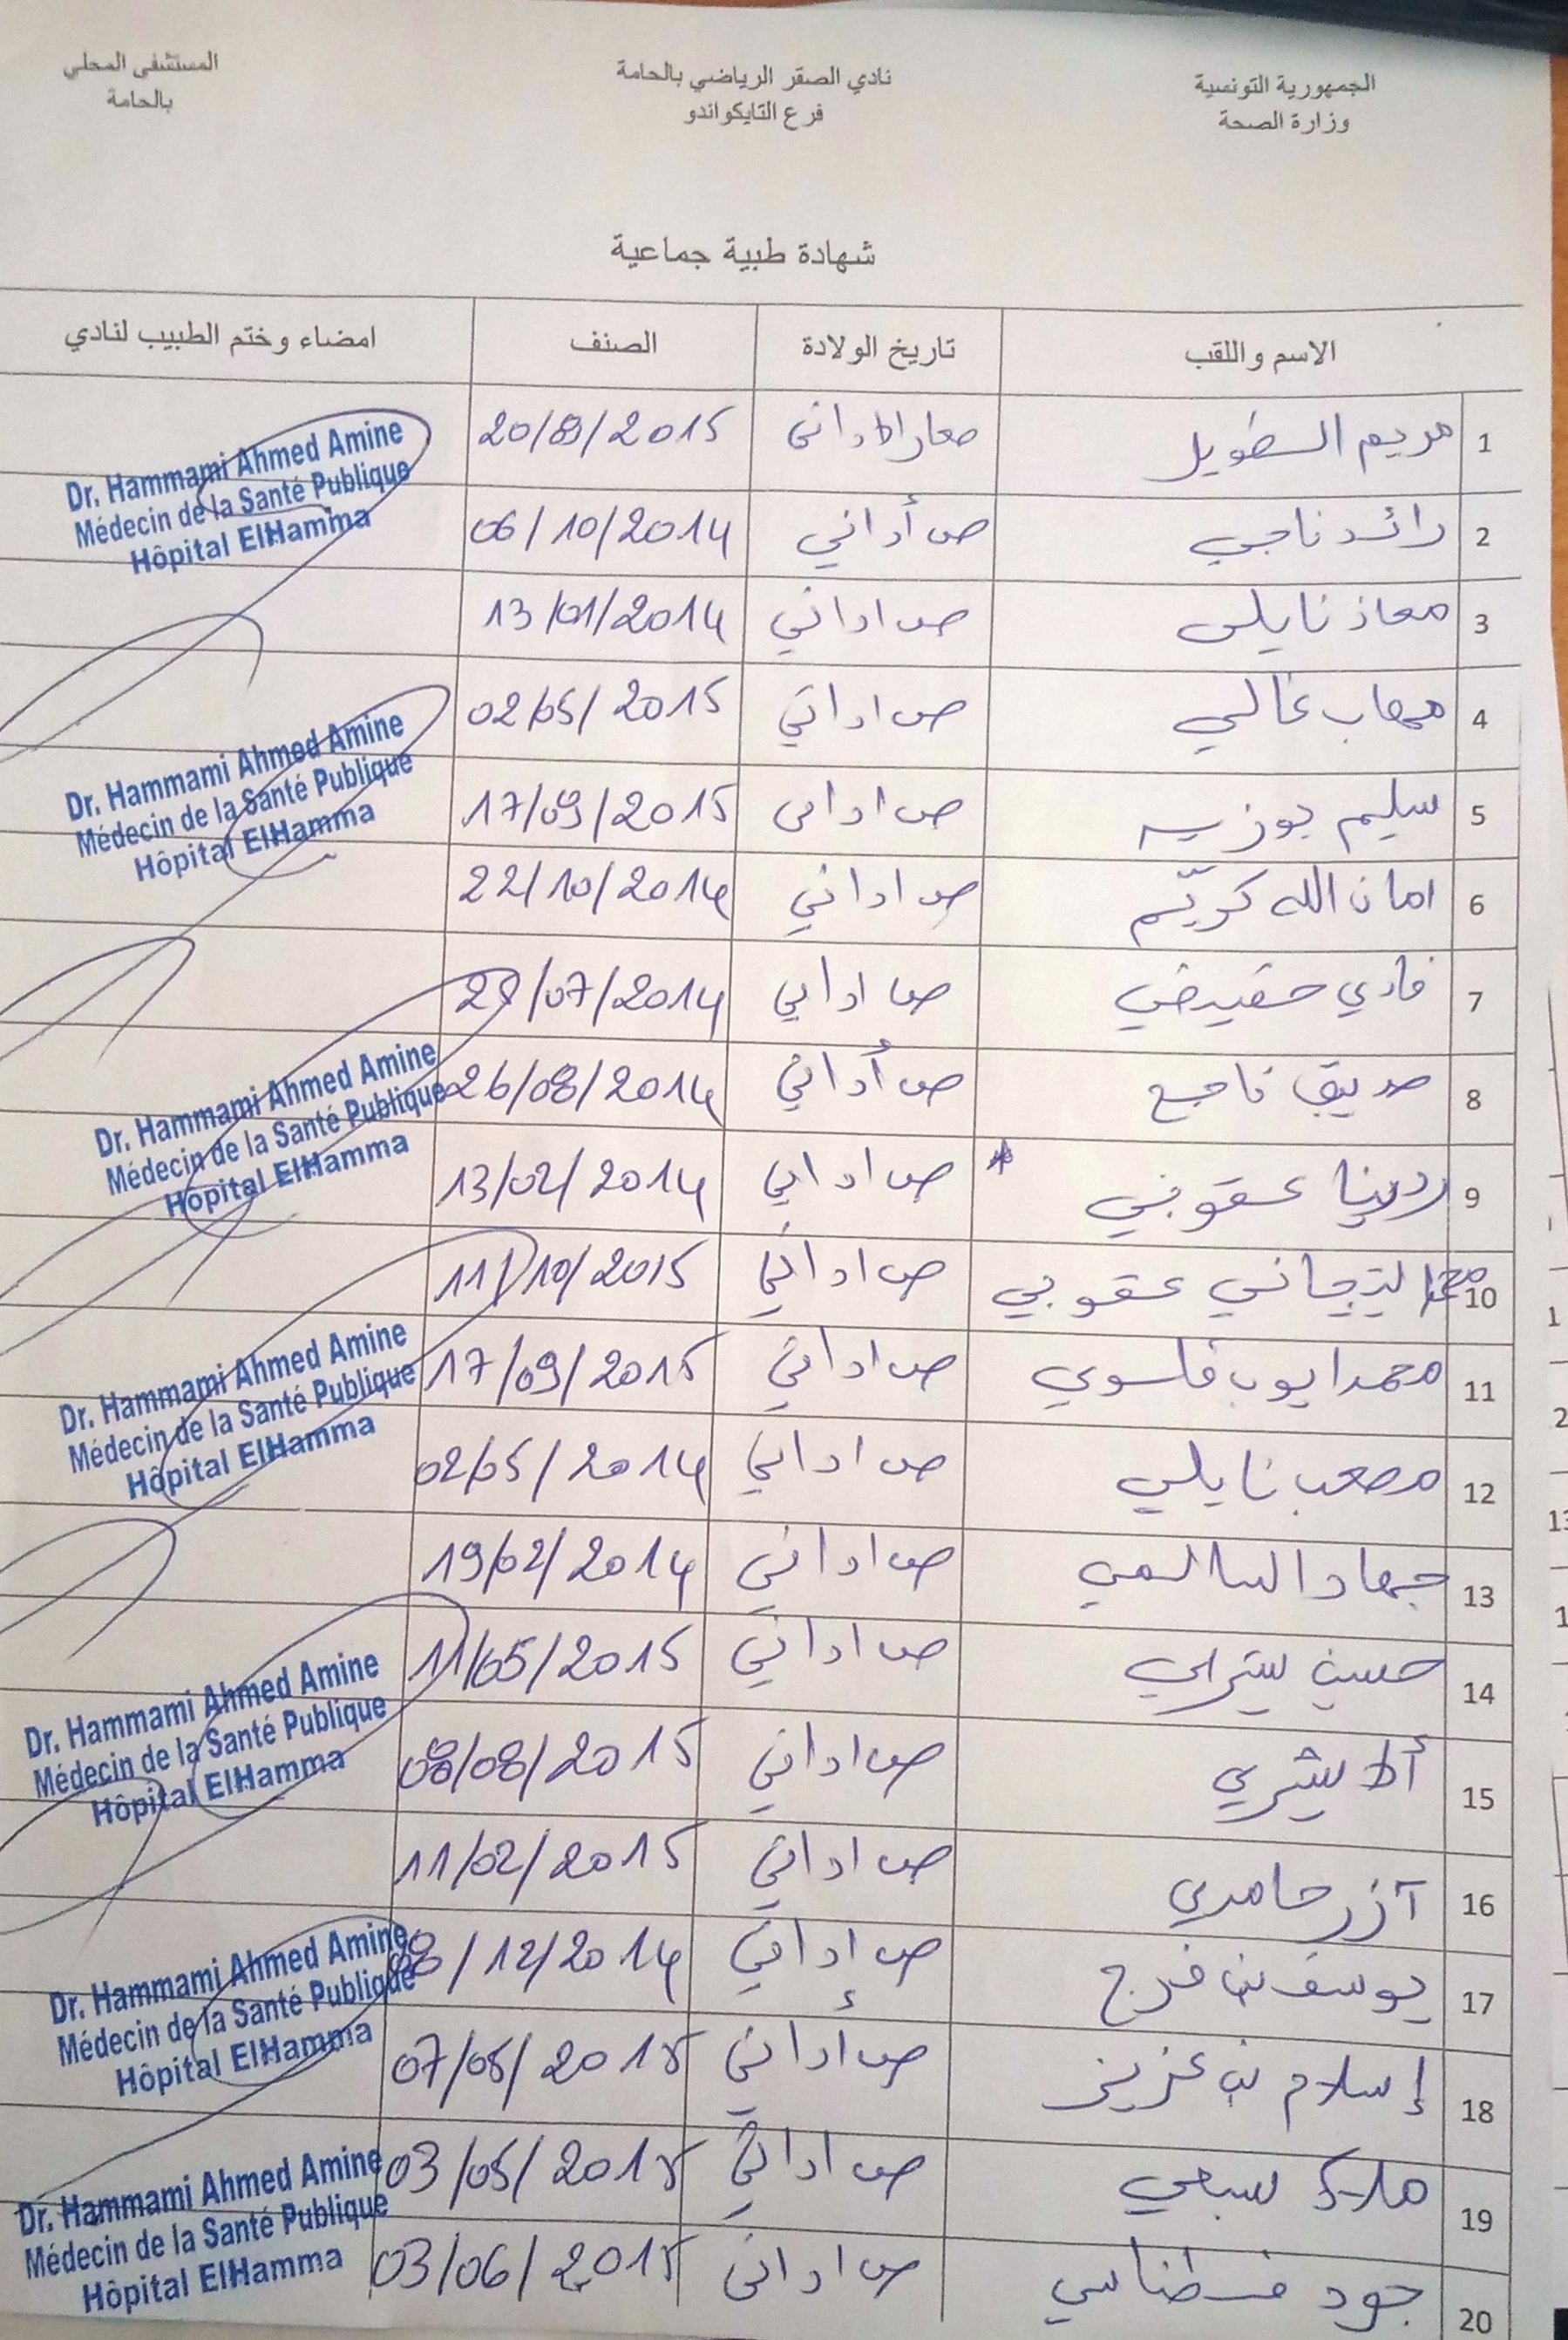 الجمهورية التونسية
وزارة الصحة
نادي الصقر الرياضي بالحامة
فرع التايكواندو
المستشفى المحلي
بالحامة
شهادة طبية جماعية
الاسم واللقب تاريخ الولادة الصنف امضاء وختم الطبيب لنادي
1 مريم الطويل 2015
2 رائد ناجي ص أداني 06/10/2014
3 معاذ نايلي ص اداني 13/01/2014
4 مهاب غالي ص اداني 02/05/2015
5 سليم ص اداني 17/09/2015
6 امان الله كريّم ص اداني 22/10/2014
7 فادي ص اداني /07/2014
8 صديق ناجع ص أداني 26/08/2014
9 عقوبي ص اداني 13/02/2014
10 محمد التيجاني عقوبي ص اداني 11/10/2015
11 محمد ايوب ص اداني 17/09/2015
12 مصعب نايلي ص اداني 02/05/2014
13 جهاد السالمي ص اداني 19/02/2014
14 حسين ص اداني 11/05/2015
15 ص اداني 08/08/2015
16 آزر حامدي ص اداني 11/02/2015
17 يوسف بن فرج ص إداني /12/2014
18 إسلام بن عزيز ص إداني 07/05/2015
19 سبعي ص إداني 03/05/2015
20 جود ص اداني 03/06/2015
Dr. Hammami Ahmed Amine
Médecin de la Santé Publique
Hôpital ElHamma
Dr. Hammami Ahmed Amine
Médecin de la Santé Publique
Hôpital ElHamma
Dr. Hammami Ahmed Amine
Médecin de la Santé Publique
Hôpital ElHamma
Dr. Hammami Ahmed Amine
Médecin de la Santé Publique
Hôpital ElHamma
Dr. Hammami Ahmed Amine
Médecin de la Santé Publique
Hôpital ElHamma
Dr. Hammami Ahmed Amine
Médecin de la Santé Publique
Hôpital ElHamma
Dr. Hammami Ahmed Amine
Médecin de la Santé Publique
Hôpital ElHamma